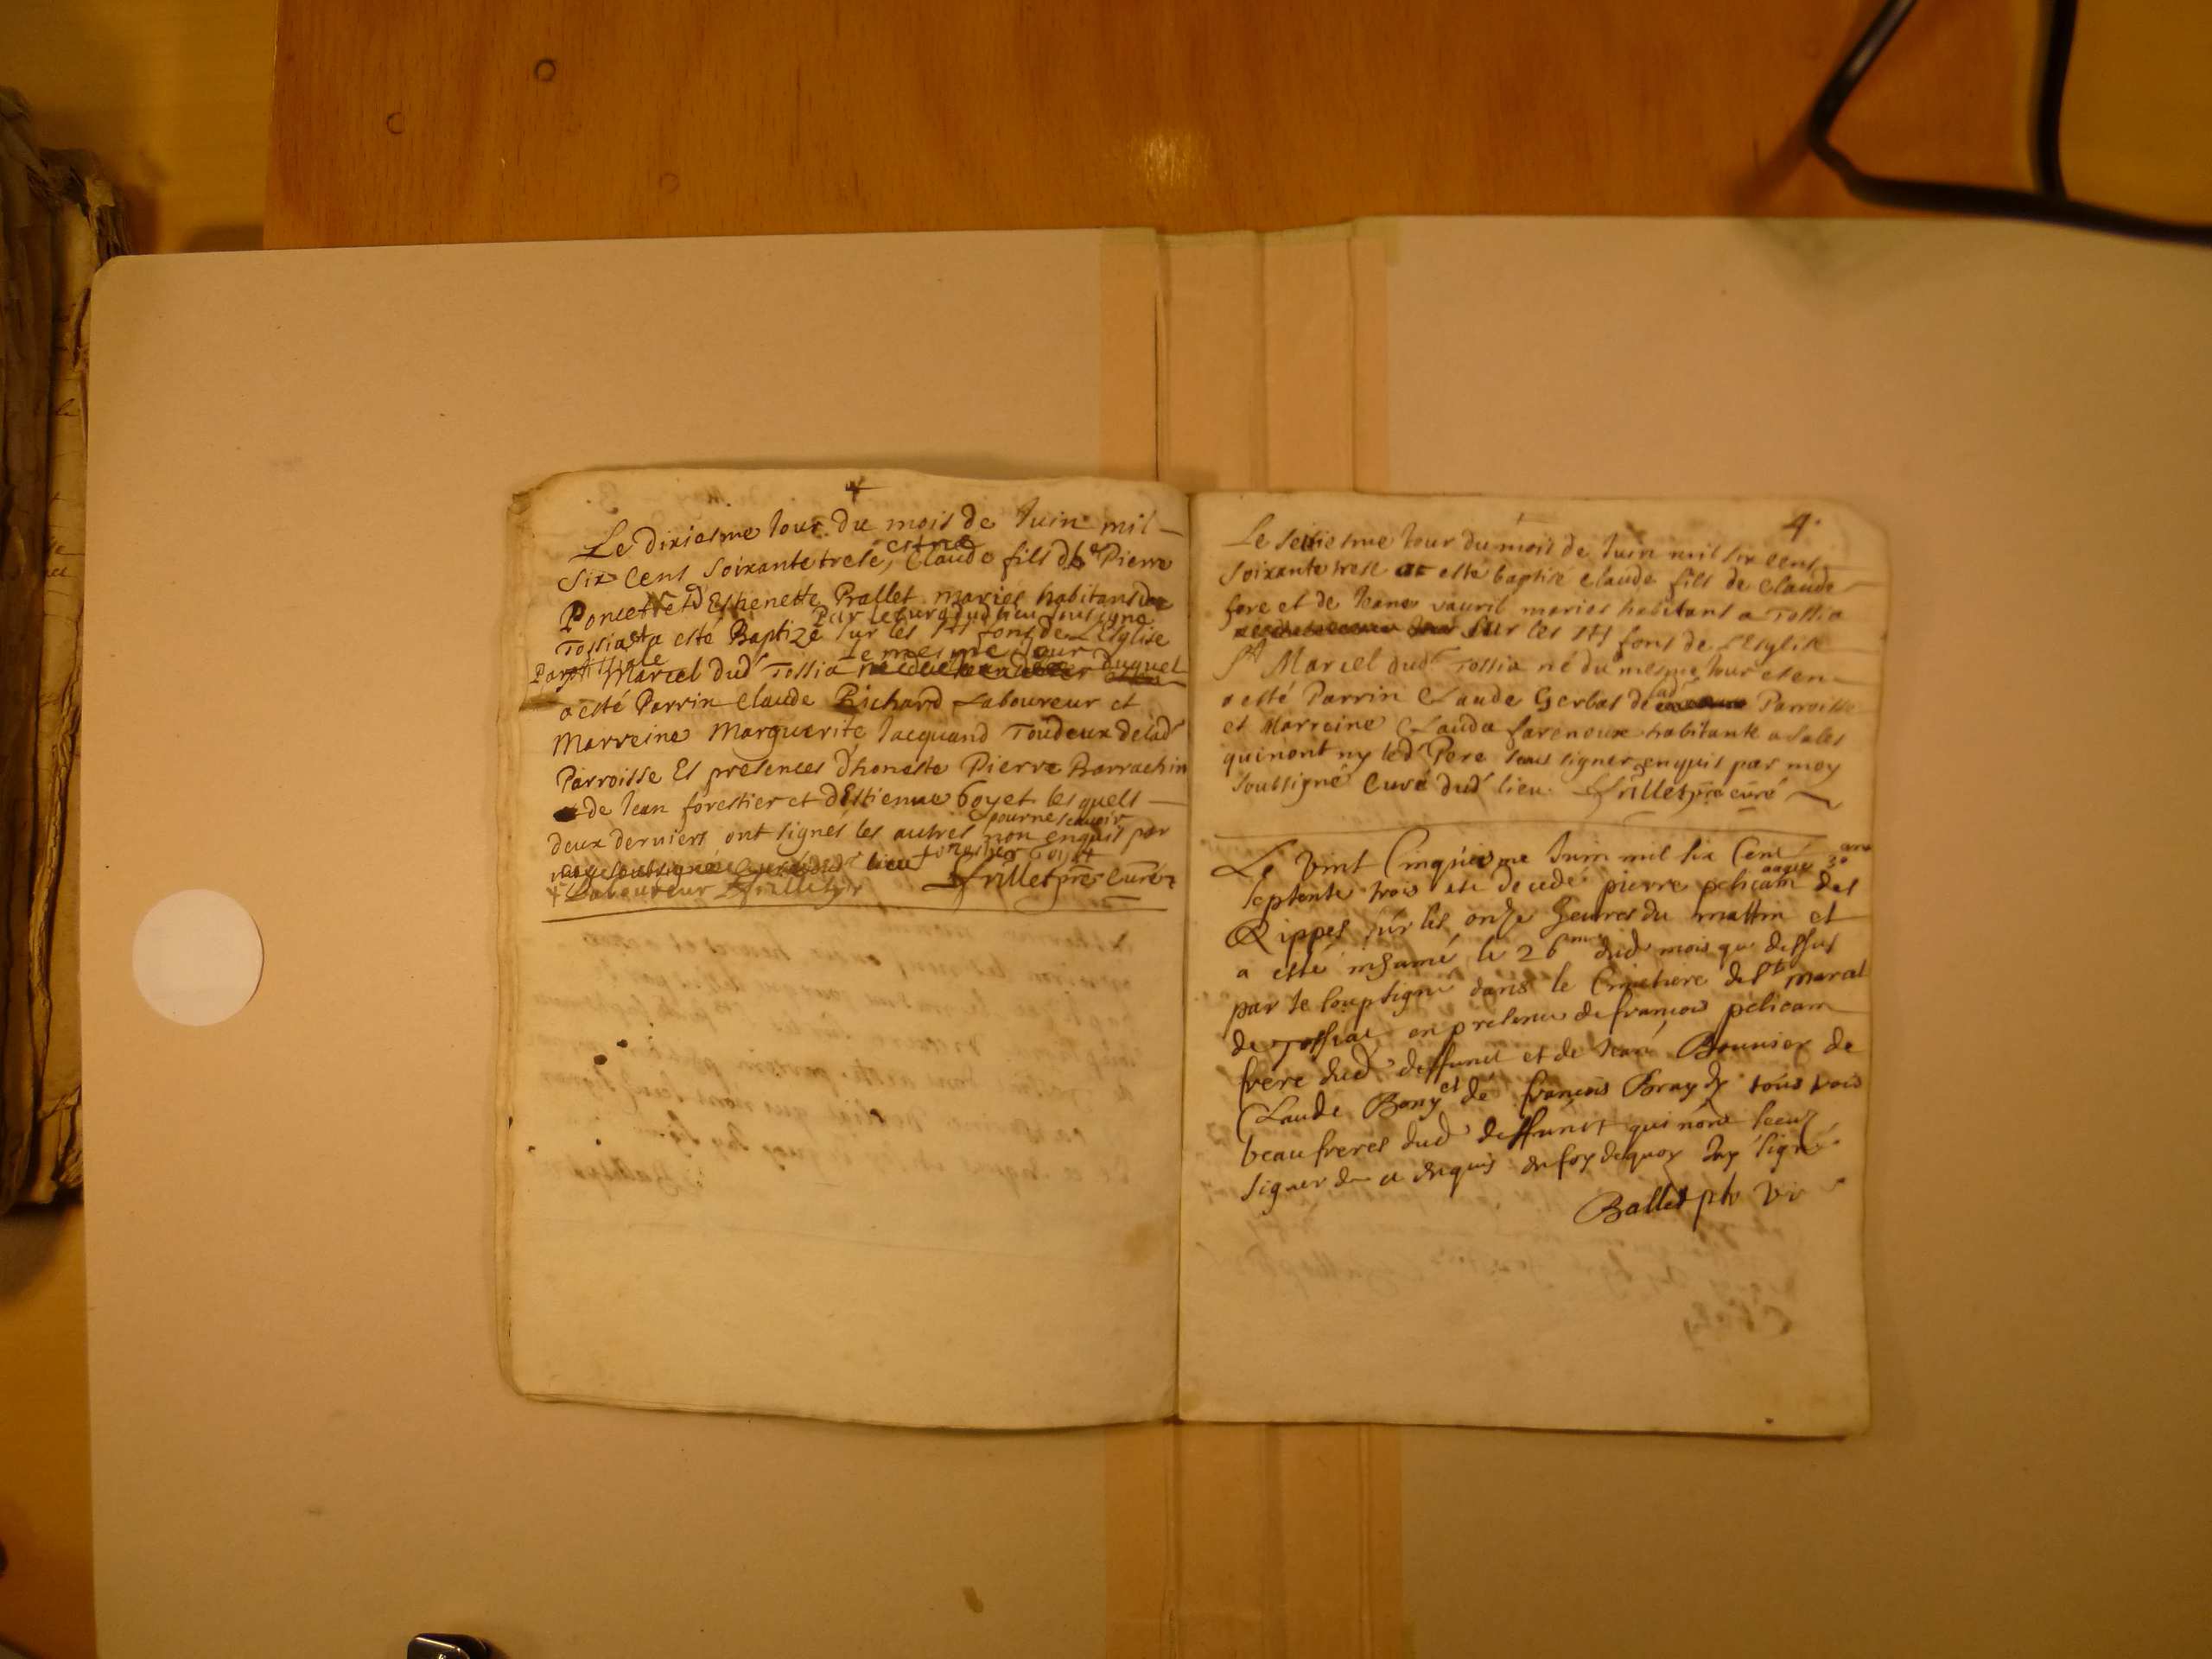 Le dixiesme Jour du mois de Juin mil
est né
Six Cens Soixante trese, Claude fils d'h. Pierre
Poncet et d'Esthenette Prallet mariés habitans de
Par le curé dud lieu soussigné
Tossia et a esté Baptizé sur les Sts fons de L'Esglise
Paroissiale le mesme Jour
St Marcel dud Tossia duquel
a esté Parrin Claude Richard Laboureur et
Marreine Marguerite Jacquand Toudeux delad
Parroisse Es presences d'honeste Pierre Barrachin
de Jean forestier et d'Estienne Goyet les quels
pour ne scavoir
deux derniers ont signés les autres non enquis par
lieu forestier Goyet
+ Laboureur Frillet pre curé
4.
Le seisiesme Jour du mois de Juin mil six cens
soixante trese a esté baptisé Claude fils de Claude
fore et de Jeane vauril mariés habitans a Tossia
sur les Sts fons de L'Esglise
St Marcel dud Tossia né du mesme Jour et en
a esté Parrin Claude Gerbas de lad Parroisse
et Marreine Clauda farenoux habitante a Sales
qui nont ny led Pere sceus signer enquis par moy
soubsigné Curé dud lieu. Frillet pre curé
Le vint Cinquiesme Juin mil six Cent
aagee 30 ans
septente trois est decedé pierre pelicam des
Rippes sur les onze heures du mattin et
a esté inhumé le 26me dud mois que dessus
par le soupsigné dans le Cimetiere de St marcel
de Tossiat en presence de francois pelicam
frere dud deffunct et de Jean Bounier de
Claude Bony et de francois Brayds tous trois
beaufreres dud deffunct qui n'ont sceuz
signer de ce enquis en foy dequoy Jay signé
Ballet ptr vi